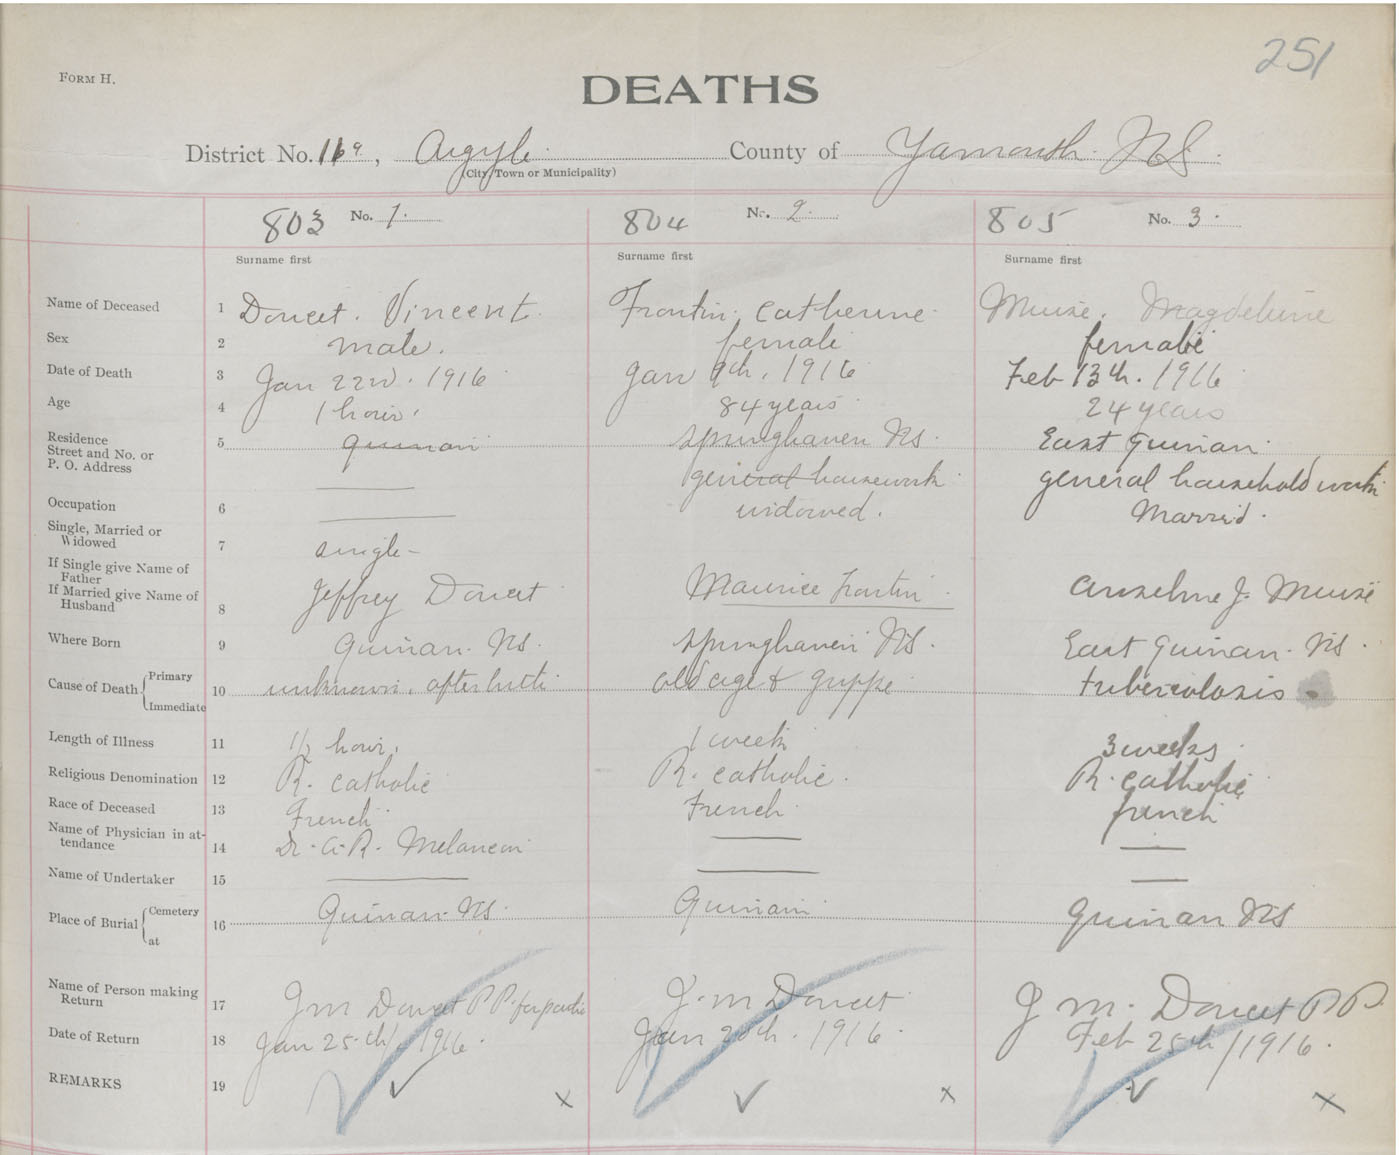 251
FORM H.
DEATHS
District No. 116 a, Argyle County of Yarmouth NS
(City Town or Municipality)
803 No. 1. 804 No. 2. 805 No. 3.
Surname first Surname first Surname first
Name of Deceased 1 Doucet. Vincent. Frontin. Catherine. Muise. Magdeline
Sex 2 male. female female
Date of Death 3 Jan 22nd. 1916 Jan 9th. 1916 Feb 13th. 1916
Age 4 1 hour. 84 years 24 years
Residence
Street and No. or
P. O. Address 5 Quinan Springhaven NS. East Quinan.
Occupation 6 general housework general household work
Single, Married or
Widowed 7 single- widowed. Married.
If Single give Name of
Father
If Married give Name of
Husband 8 Jeffrey Doucet Maurice Frontin. Anselme J. Muise
Where Born 9 Quinan. NS. Springhaven NS. East Quinan. NS.
Cause of Death Primary
Immediate 10 unknown, after birth old age & grippe tuberculosis
Length of Illness 11 1/2 hour. 1 week 3 weeks
Religious Denomination 12 R. Catholic R. Catholic. R. Catholic
Race of Deceased 13 French French french
Name of Physician in at-
tendance 14 Dr. A. R. Melancon
Name of Undertaker 15
Place of Burial Cemetery
at 16 Quinan NS. Quinan Quinan NS
Name of Person making
Return 17 J M Doucet P P. J. M Doucet J M. Doucet P P.
Date of Return 18 Jan 25th/1916. Jan 20th. 1916. Feb 25th/1916.
REMARKS 19 ✓ x ✓ x ✓ x